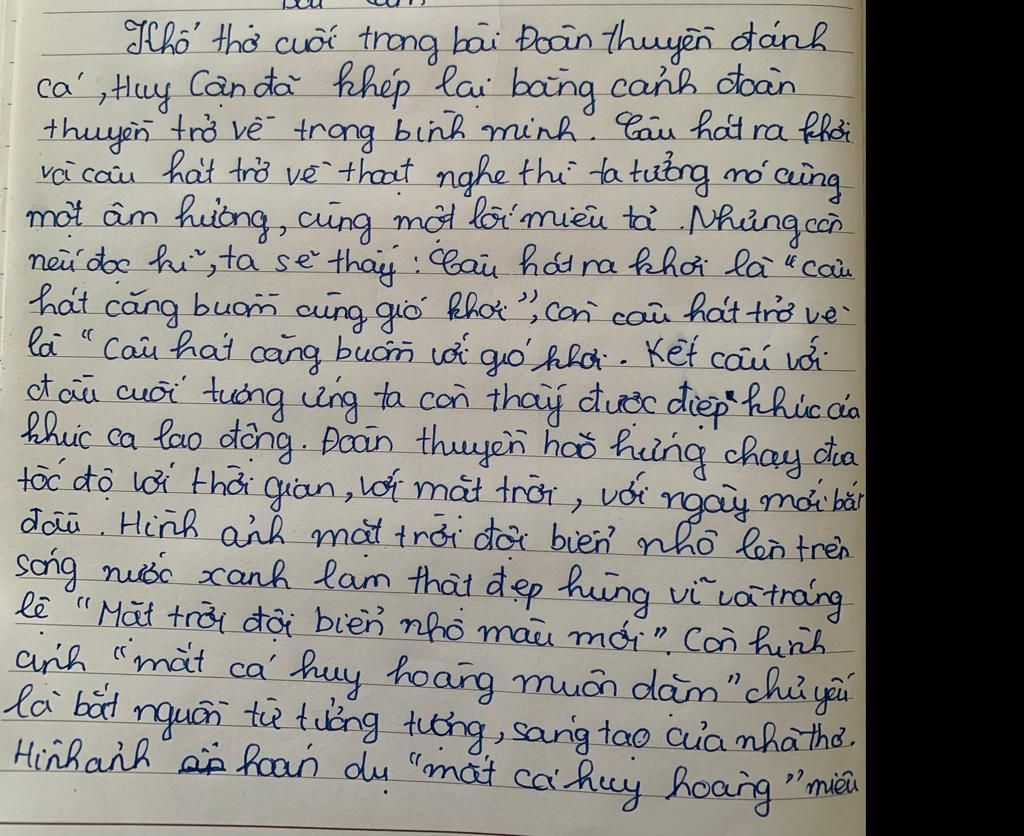 Khổ thơ cuối trong bài Đoàn thuyền đánh
cá, Huy Cận đã khép lại bằng cảnh đoàn
thuyền trở về trong bình minh. Câu hát ra khơi
và câu hát trở về thoạt nghe thì ta tưởng nó cùng
một âm hưởng, cùng một lối miêu tả. Nhưng còn
nếu đọc kĩ, ta sẽ thấy: Câu hát ra khơi là "câu
hát căng buồm cùng gió khơi", còn câu hát trở về
là "Câu hát căng buồm với gió khơi. Kết cấu với
đầu cuối tương ứng ta còn thấy được điệp khúc của
khúc ca lao động. Đoàn thuyền hào hứng chạy đua
tốc độ với thời gian, với mặt trời, với ngày mới bắt
đầu. Hình ảnh mặt trời đội biển nhô lên trên
sóng nước xanh lam thật đẹp hùng vĩ và tráng
lệ "Mặt trời đội biển nhô màu mới". Còn hình
ảnh "mắt cá huy hoàng muôn dặm" chủ yếu
là bắt nguồn từ tưởng tượng, sáng tạo của nhà thơ.
Hình ảnh hoán dụ "mắt cá huy hoàng" miêu